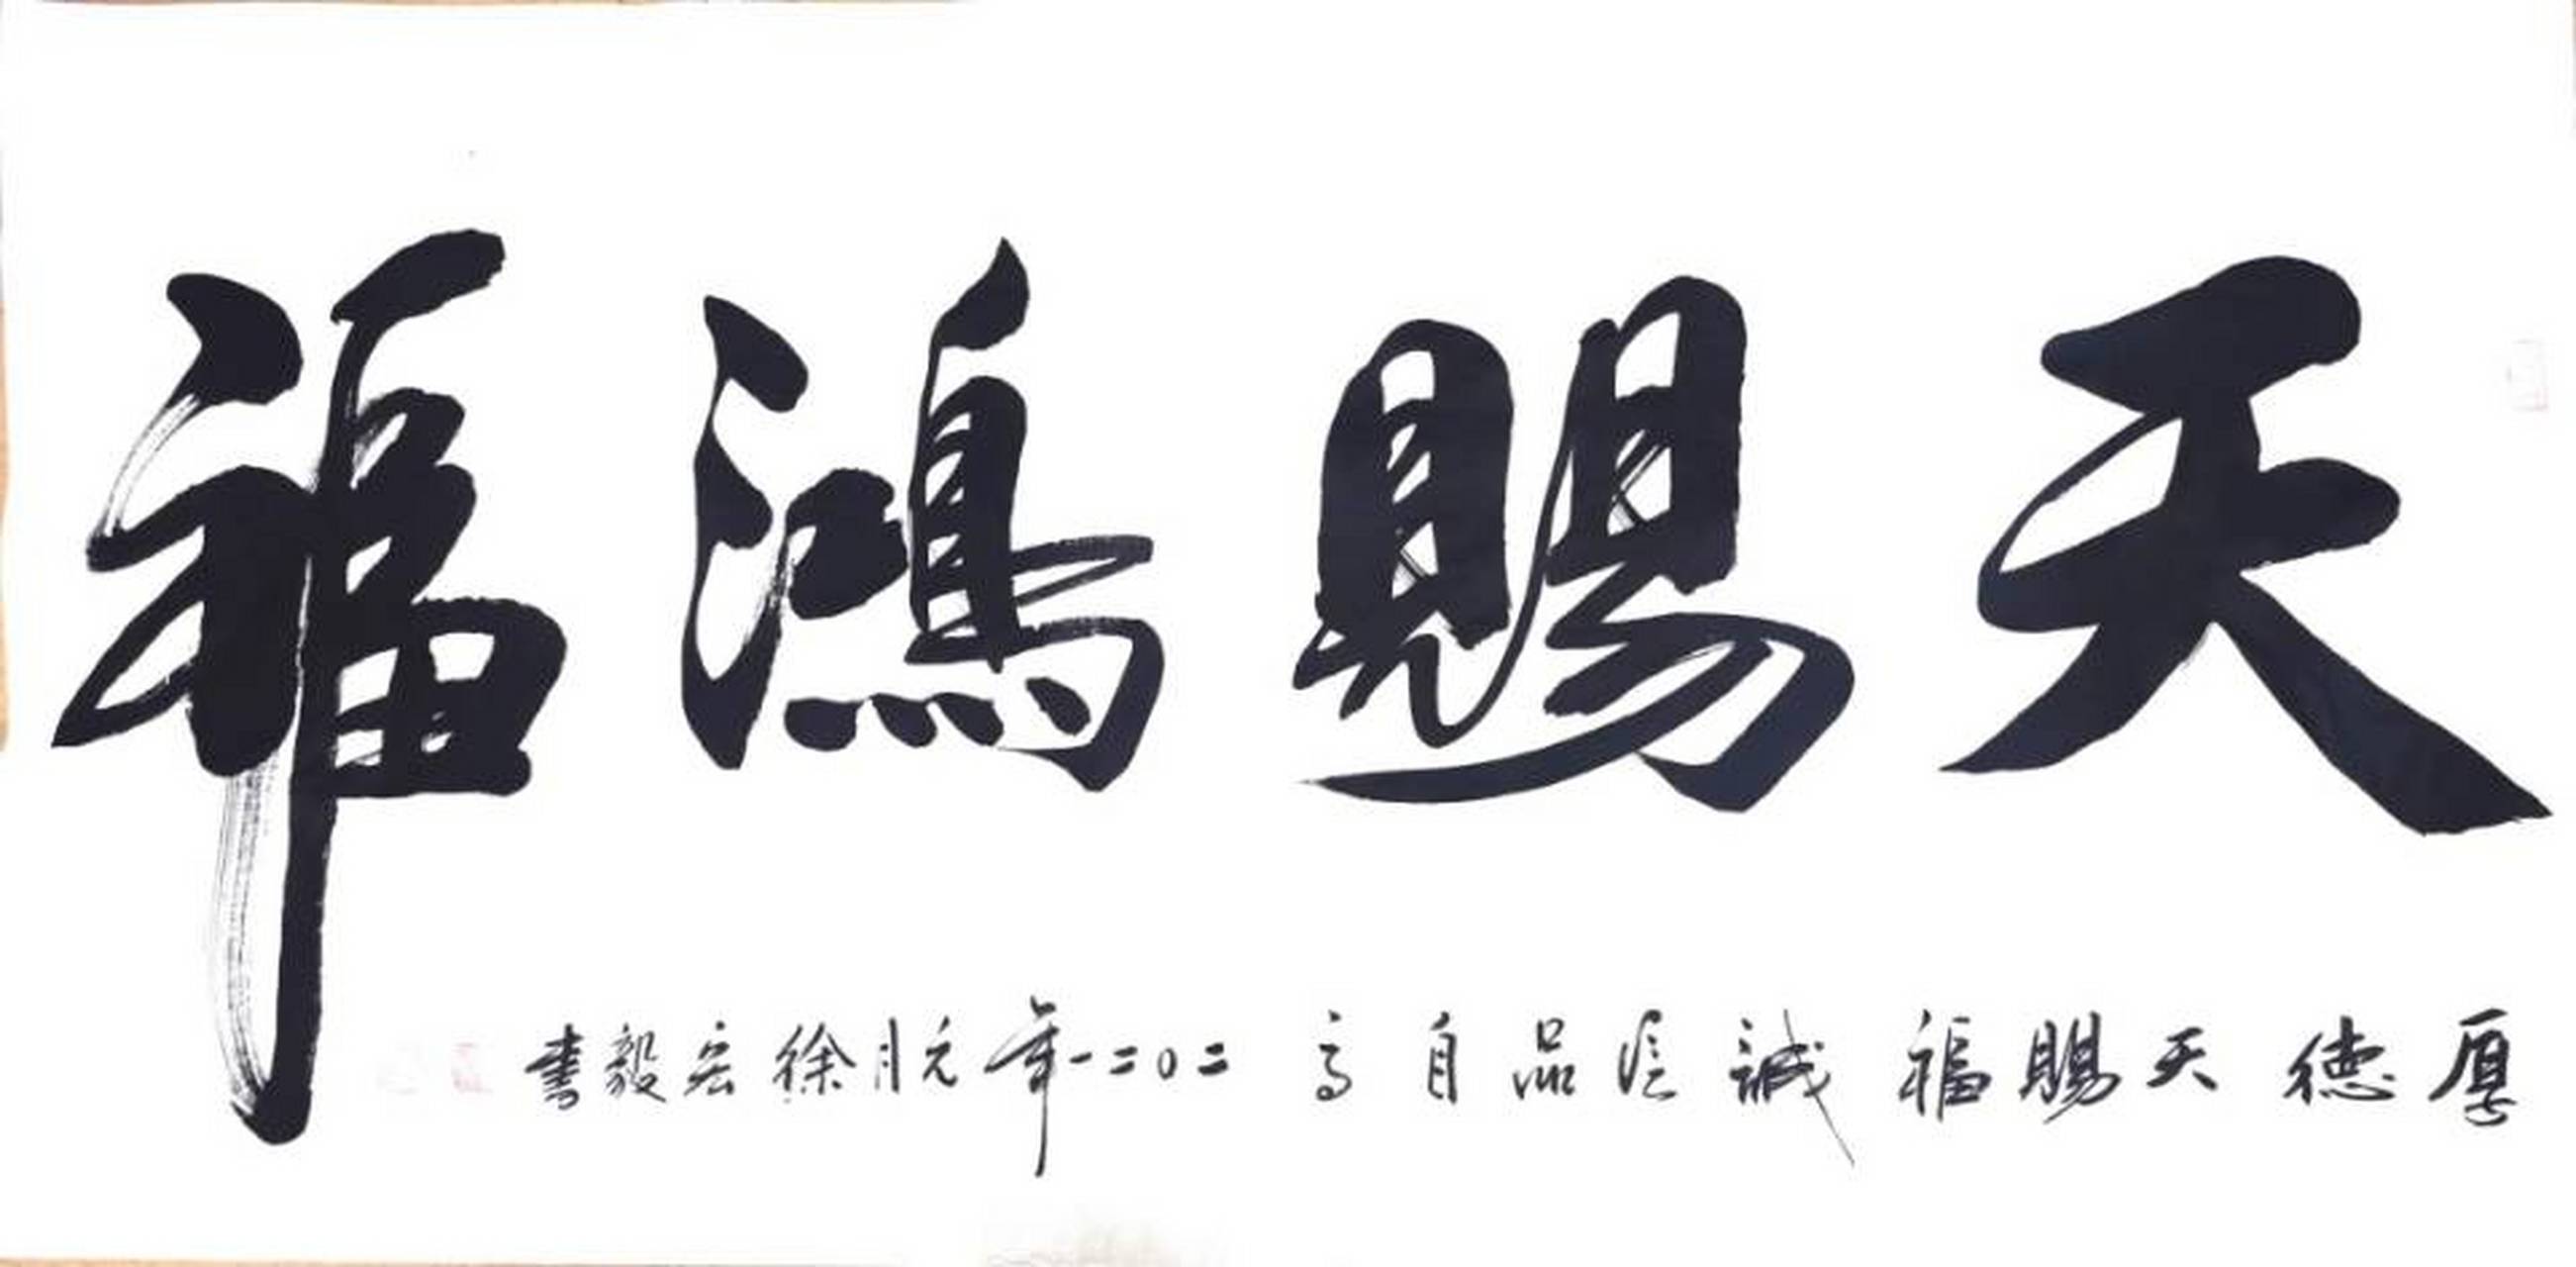 天賜鴻福
厚德天賜福誠信品自高二〇二一年元月徐宏毅書